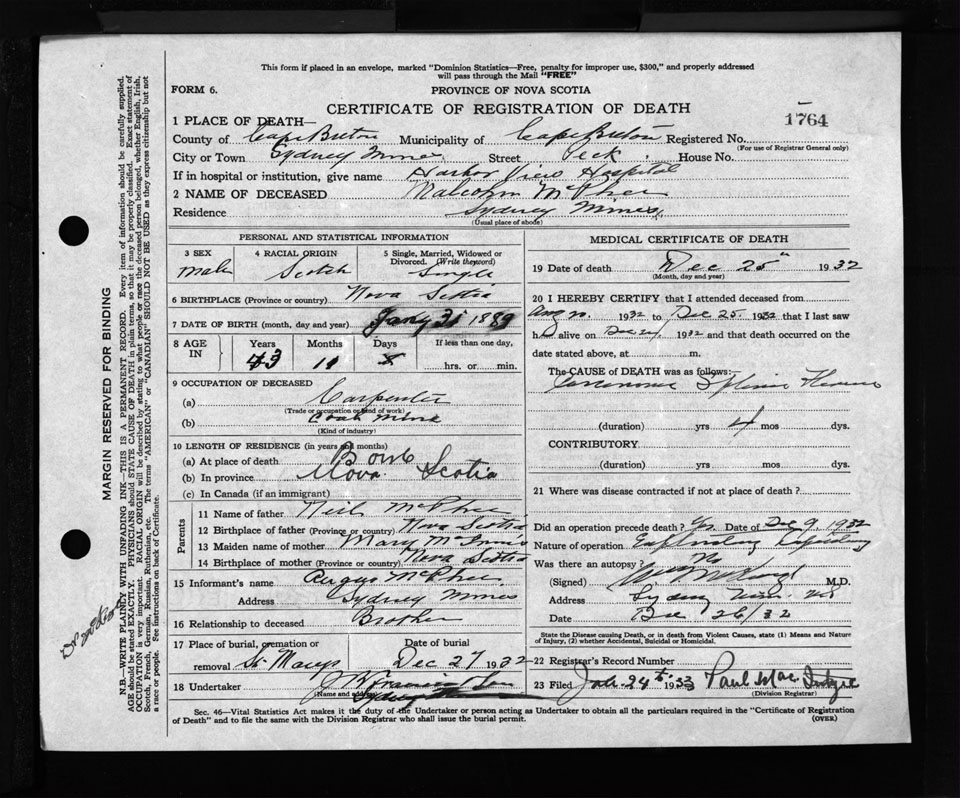 This form if placed in an envelope, marked "Dominion Statistics—Free, penalty for improper use, $300," and properly addressed
will pass through the Mail "FREE"
FORM 6. PROVINCE OF NOVA SCOTIA
CERTIFICATE OF REGISTRATION OF DEATH
1764
1 PLACE OF DEATH—
County of Cape Breton Municipality of Cape Breton Registered No.
(For use of Registrar General only)
City or Town Sydney Mines Street Peck House No.
If in hospital or institution, give name Harbor View Hospital
2 NAME OF DECEASED Malcolm McPhee
Residence Sydney Mines
(Usual place of abode)
PERSONAL AND STATISTICAL INFORMATION
3 SEX 4 RACIAL ORIGIN 5 Single, Married, Widowed or
Divorced. (Write the word)
Male Scotch Single
6 BIRTHPLACE (Province or country) Nova Scotia
7 DATE OF BIRTH (month, day and year) Jany 31 1889
8 AGE IN Years Months Days If less than one day,
43 hrs. or min.
9 OCCUPATION OF DECEASED
(a) Carpenter
(Trade or occupation or kind of work)
(b) Coal Mine
(Kind of industry)
10 LENGTH OF RESIDENCE (in years and months)
(a) At place of death Born
(b) In province Nova Scotia
(c) In Canada (if an immigrant)
Parents
11 Name of father Neil McPhee
12 Birthplace of father (Province or country) Nova Scotia
13 Maiden name of mother Mary McInnis
14 Birthplace of mother (Province or country) Nova Scotia
15 Informant's name Angus McPhee
Address Sydney Mines
16 Relationship to deceased Brother
17 Place of burial, cremation or Date of burial
removal St. Marys Dec 27 1932
18 Undertaker
MEDICAL CERTIFICATE OF DEATH
19 Date of death Dec 25th 1932
(Month, day and year)
20 I HEREBY CERTIFY that I attended deceased from
Aug 1932 to Dec 25. 1932 that I last saw
h alive on Dec 1932 and that death occurred on the
date stated above, at m.
The CAUSE of DEATH was as follows:
Carcinoma Splenic Flexure
(duration) yrs 4 mos dys.
CONTRIBUTORY
(duration) yrs mos dys.
21 Where was disease contracted if not at place of death?
Did an operation precede death? Yes Date of Dec 9 1932
Nature of operation Exploratory Laparotomy
Was there an autopsy? No
(Signed) M.D.
Address Sydney Mines NS
Date Dec 26/32
State the Disease causing Death, or in death from Violent Causes, state (1) Means and Nature of
Injury, (2) whether Accidental, Suicidal or Homicidal.
22 Registrar's Record Number
23 Filed Jan 24th 1933 Paul Mac Intyre
(Division Registrar)
Sec. 46—Vital Statistics Act makes it the duty of the Undertaker or person acting as Undertaker to obtain all the particulars required in the "Certificate of Registration
of Death" and to file the same with the Division Registrar who shall issue the burial permit. (OVER)
MARGIN RESERVED FOR BINDING
N.B.—WRITE PLAINLY WITH UNFADING INK—THIS IS A PERMANENT RECORD. Every item of information should be carefully supplied.
AGE should be stated EXACTLY. PHYSICIANS should STATE CAUSE OF DEATH in plain terms, so that it may be properly classified. Exact statement of
OCCUPATION is very important. RACIAL ORIGIN will be described by stating to what people or race the deceased person belonged, whether English, Irish,
Scotch, French, German, Russian, Ruthenian, etc. The terms "AMERICAN" or "CANADIAN" SHOULD NOT BE USED as they express citizenship but not
a race or people. See instructions on back of Certificate.